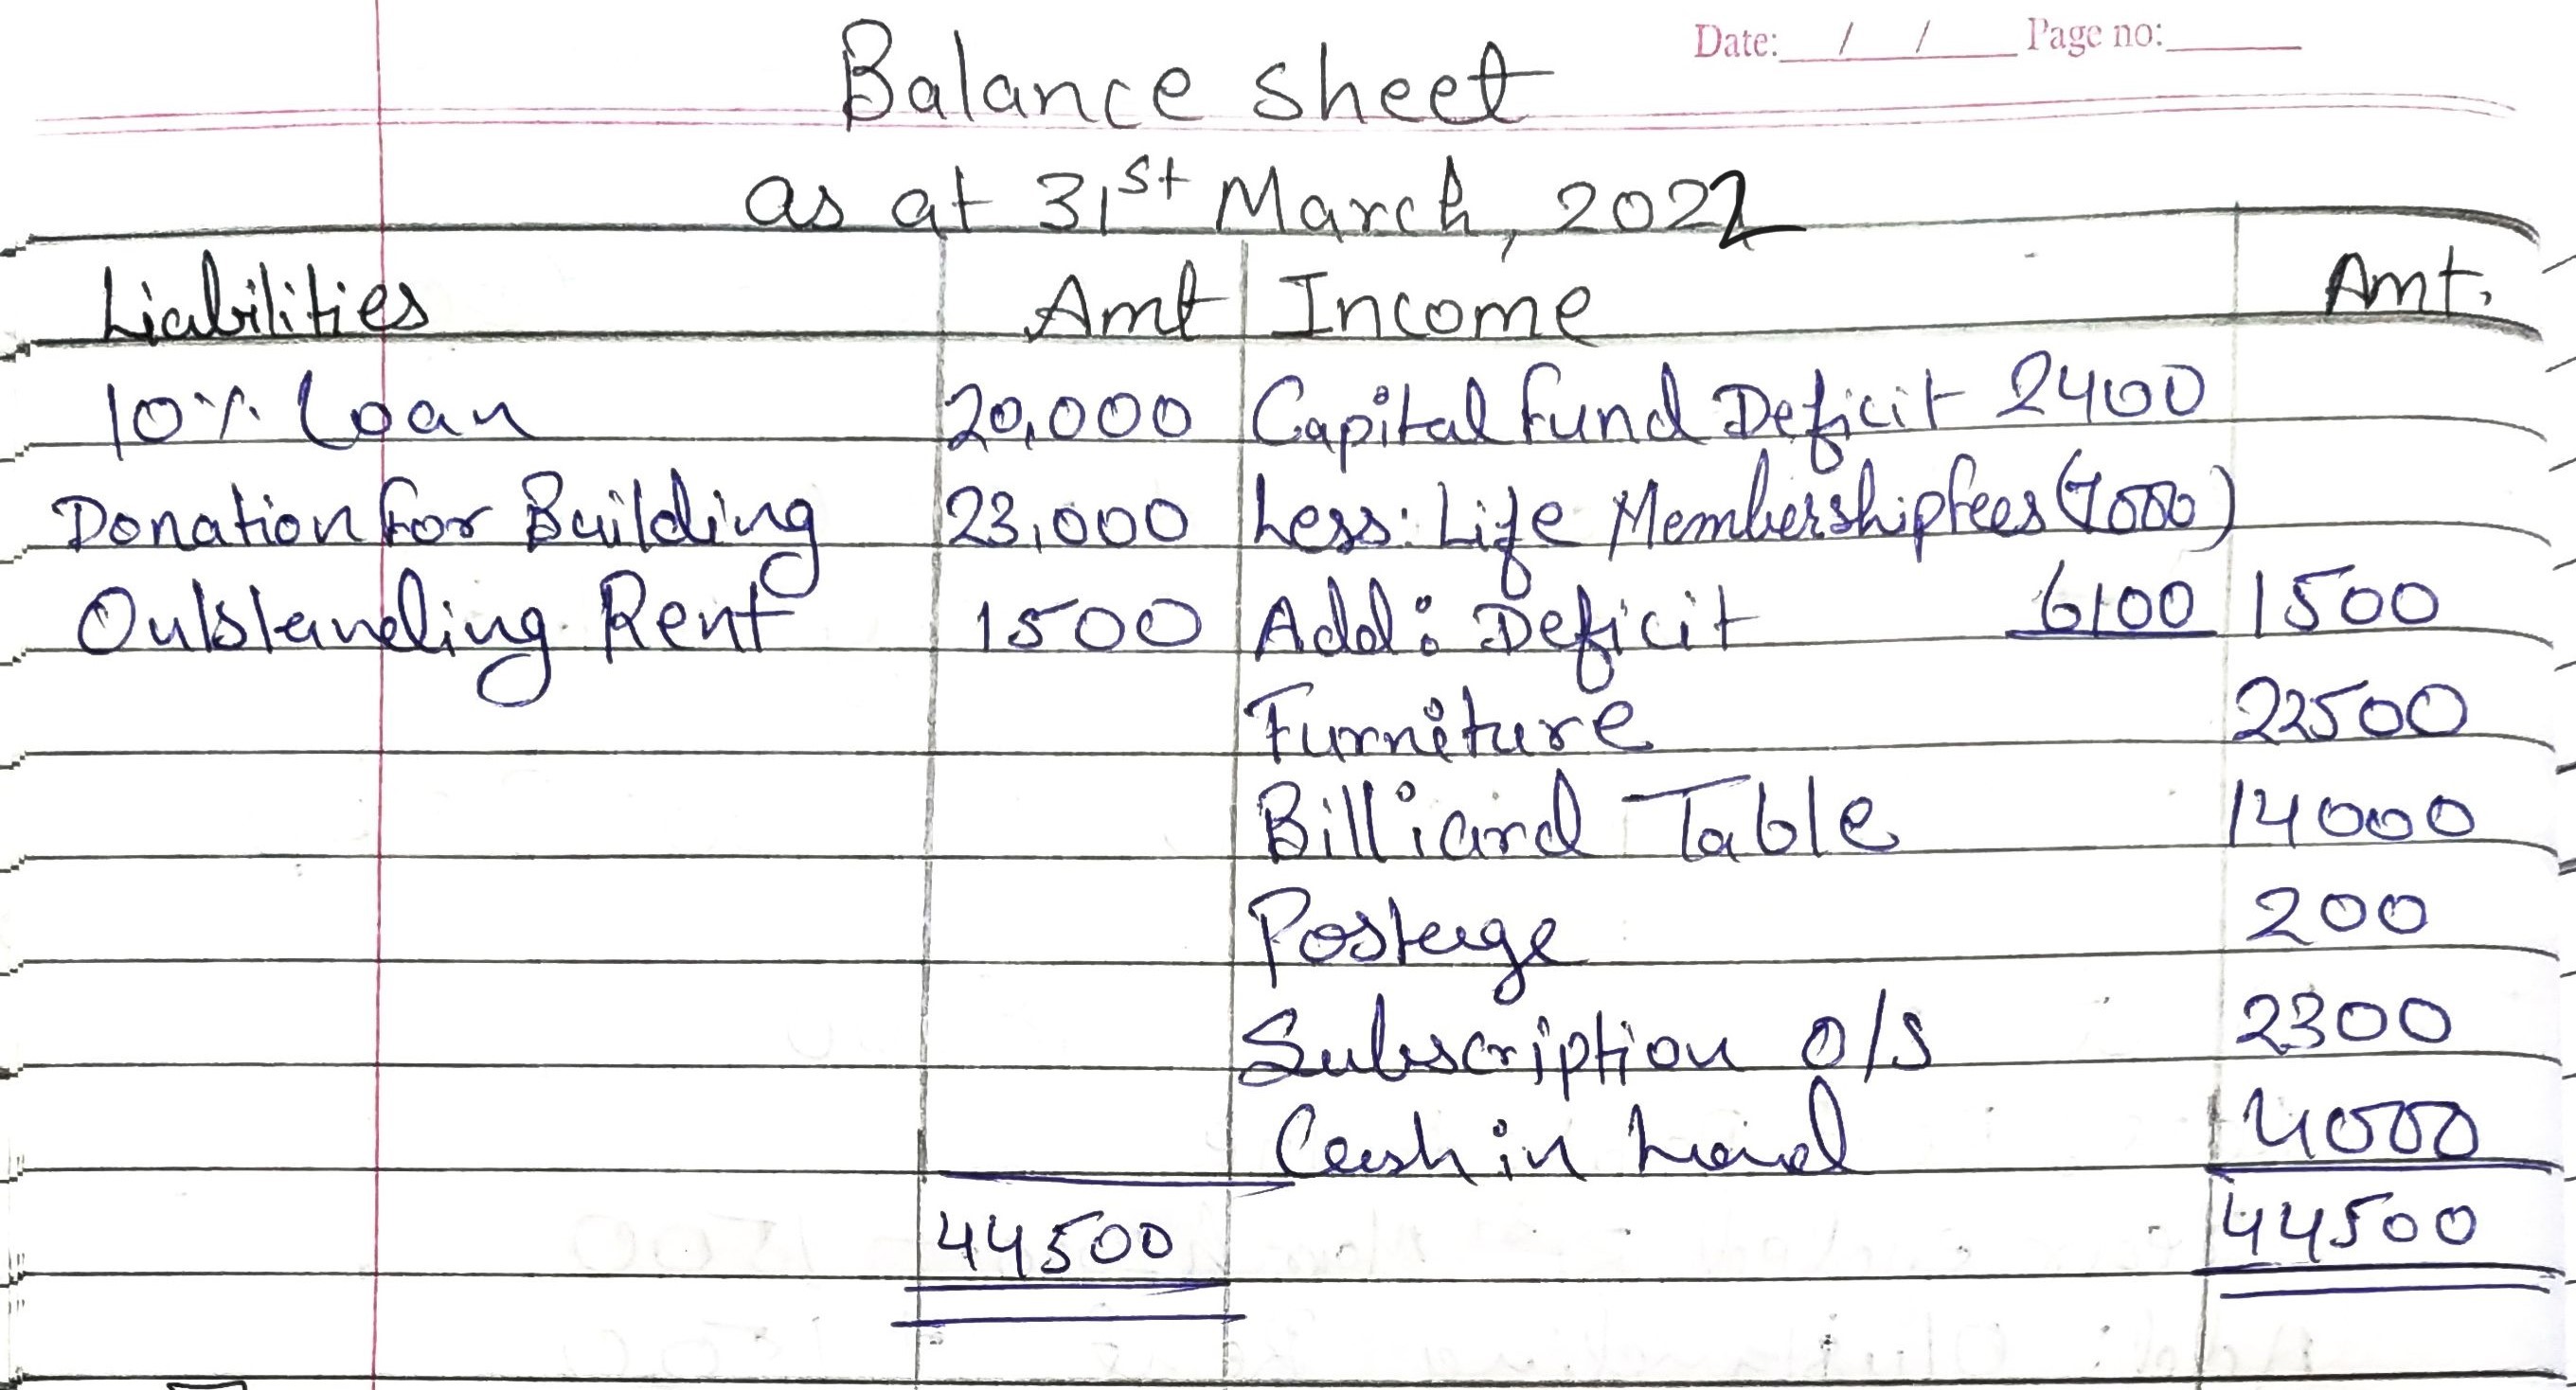 Date: / / Page no:
Balance sheet
as at 31st March, 2022
Liabilities Amt Income Amt.
10% Loan 20,000 Capital Fund Deficit 2400
Donation for Building 23,000 Less: Life Membership fees (7000)
Outstanding Rent 1500 Add: Deficit 6100 1500
Furniture 22500
Billiard Table 14000
Postage 200
Subscription o/s 2300
Cash in hand 4000
44500 44500